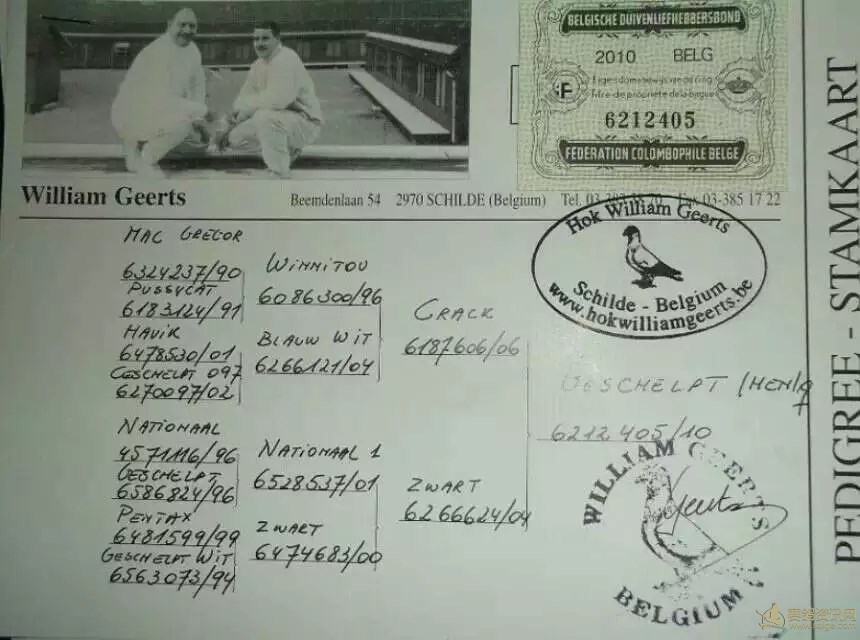 BELGISCHE DUIVENLIEFHEBBERSBOND
2010 BELG
Eigendomsbewijs van de ring
Titre de propriété de la bague
F
6212405
FEDERATION COLOMBOPHILE BELGE
William Geerts
Beemdenlaan 54 2970 SCHILDE (Belgium) Tel. 03- Fax 03-385 17 22
Hok William Geerts
Schilde - Belgium
www.hokwilliamgeerts.be
PEDIGREE - STAMKAART
MAC GREGOR
6324237/90
PUSSYCAT
6183124/91
HAVIK
6478530/01
GESCHELPT 097
6270097/02
NATIONAAL
4571116/96
GESCHELPT
6586824/96
PENTAX
6481599/99
GESCHELPT WIT
6563073/94
WINNITOU
6086300/96
BLAUW WIT
6266121/04
NATIONAAL 1
6528537/01
ZWART
6474683/00
CRACK
6187606/06
ZWART
6266624/04
GESCHELPT (HEN)
6212405/10
WILLIAM GEERTS
BELGIUM